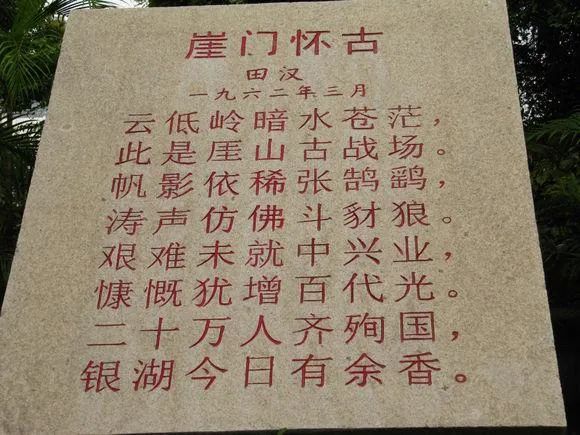 崖门怀古
田汉
一九六二年三月
云低岭暗水苍茫，
此是崖山古战场。
帆影依稀张鹄鹞，
涛声仿佛斗豺狼。
艰难未就中兴业，
慷慨犹增百代光。
二十万人齐殉国，
银湖今日有余香。